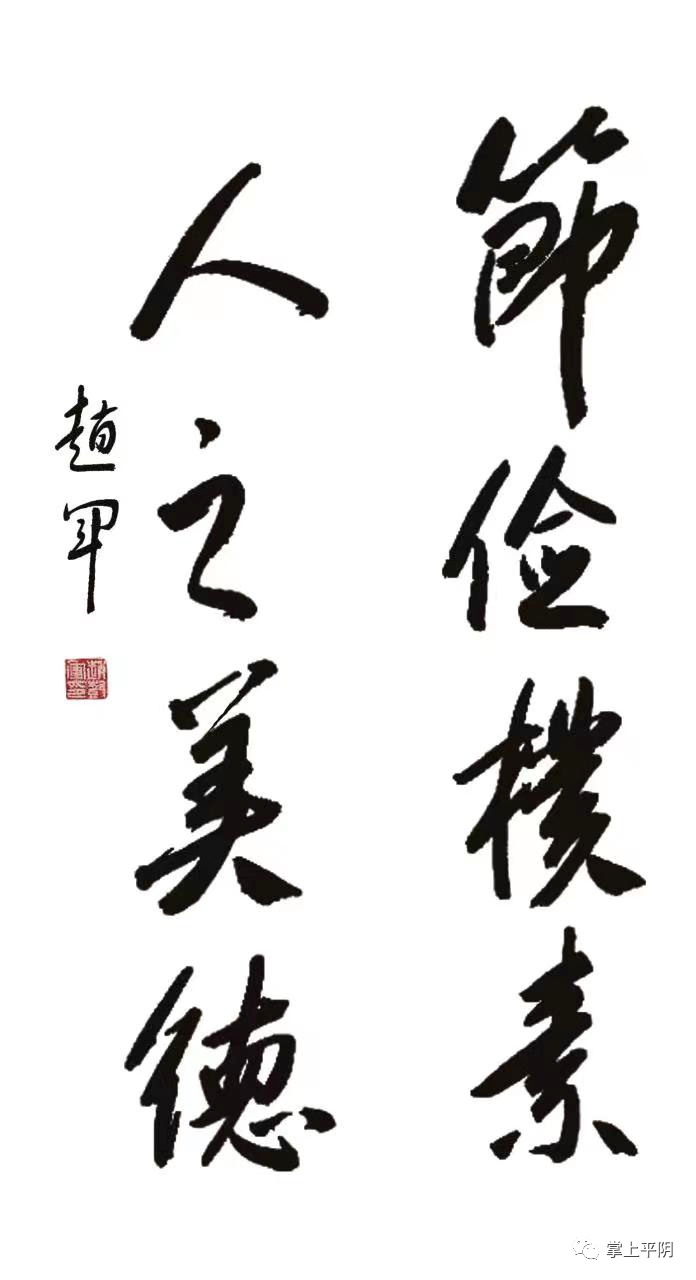 節儉樸素
人之美德
趙軍
掌上平阴